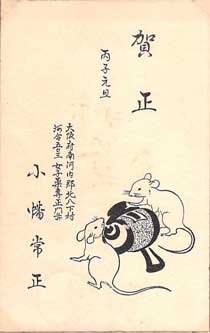 賀正
丙子元旦
大阪府南河内郡北八下村
河合五〇三 女子薬専正門前
小幡常正